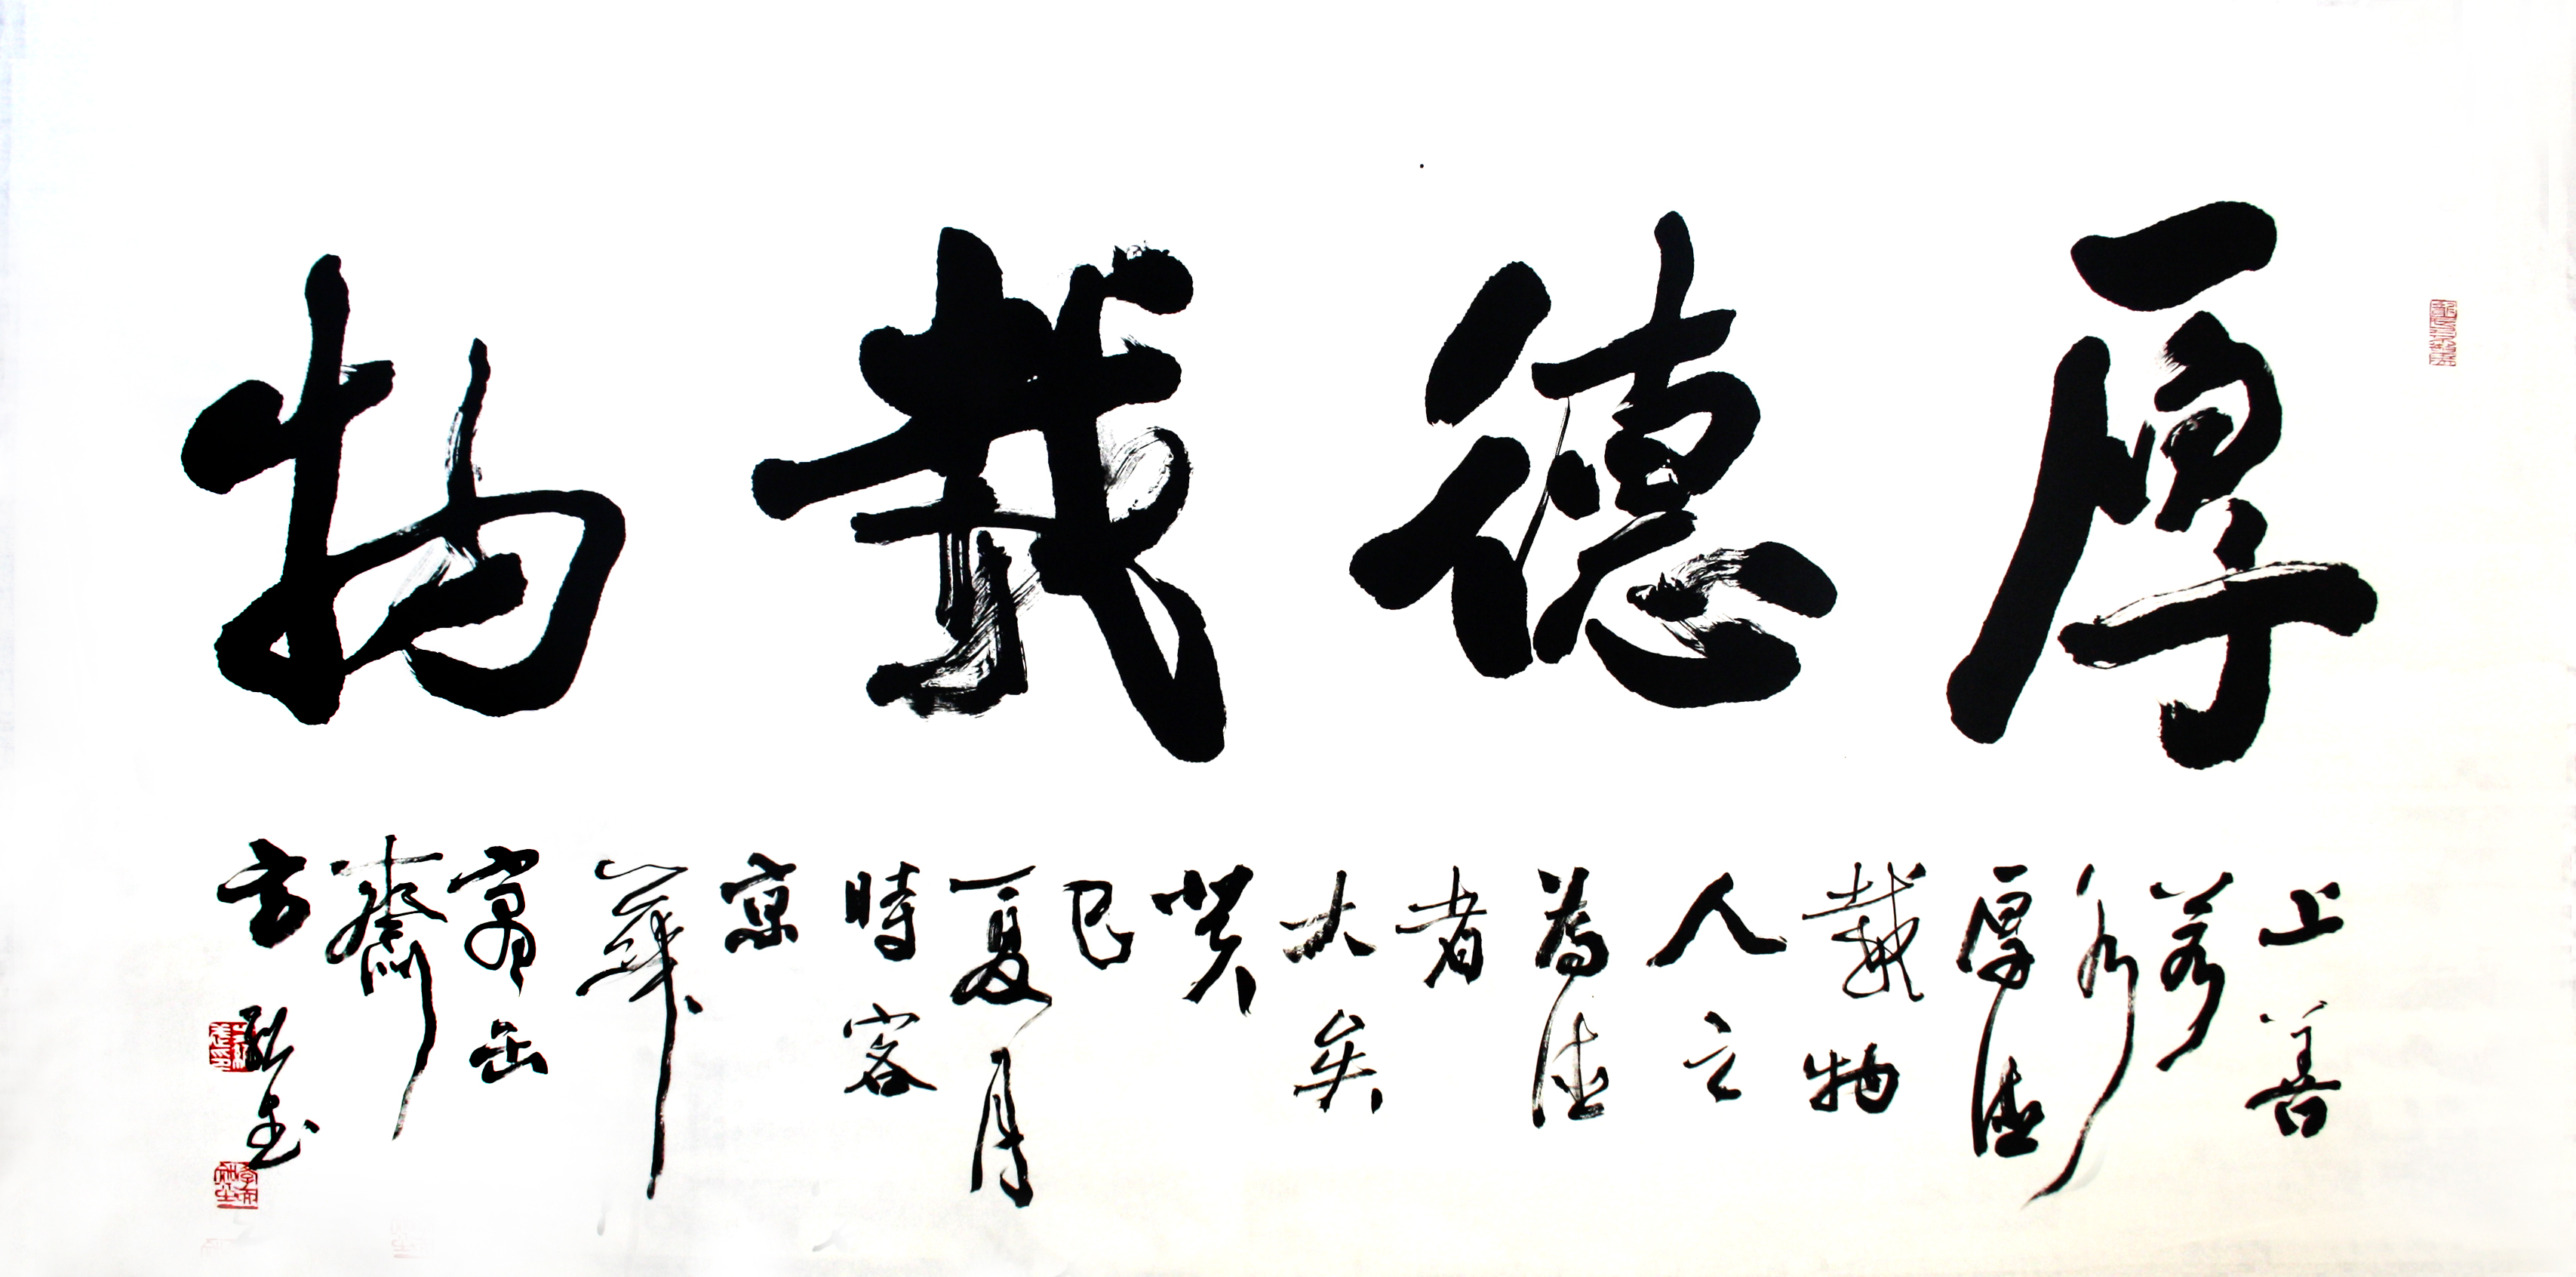 厚德載物
上善
若水
厚德
載物
人之
為德
者
大矣
癸
巳
夏月
時客
京
華